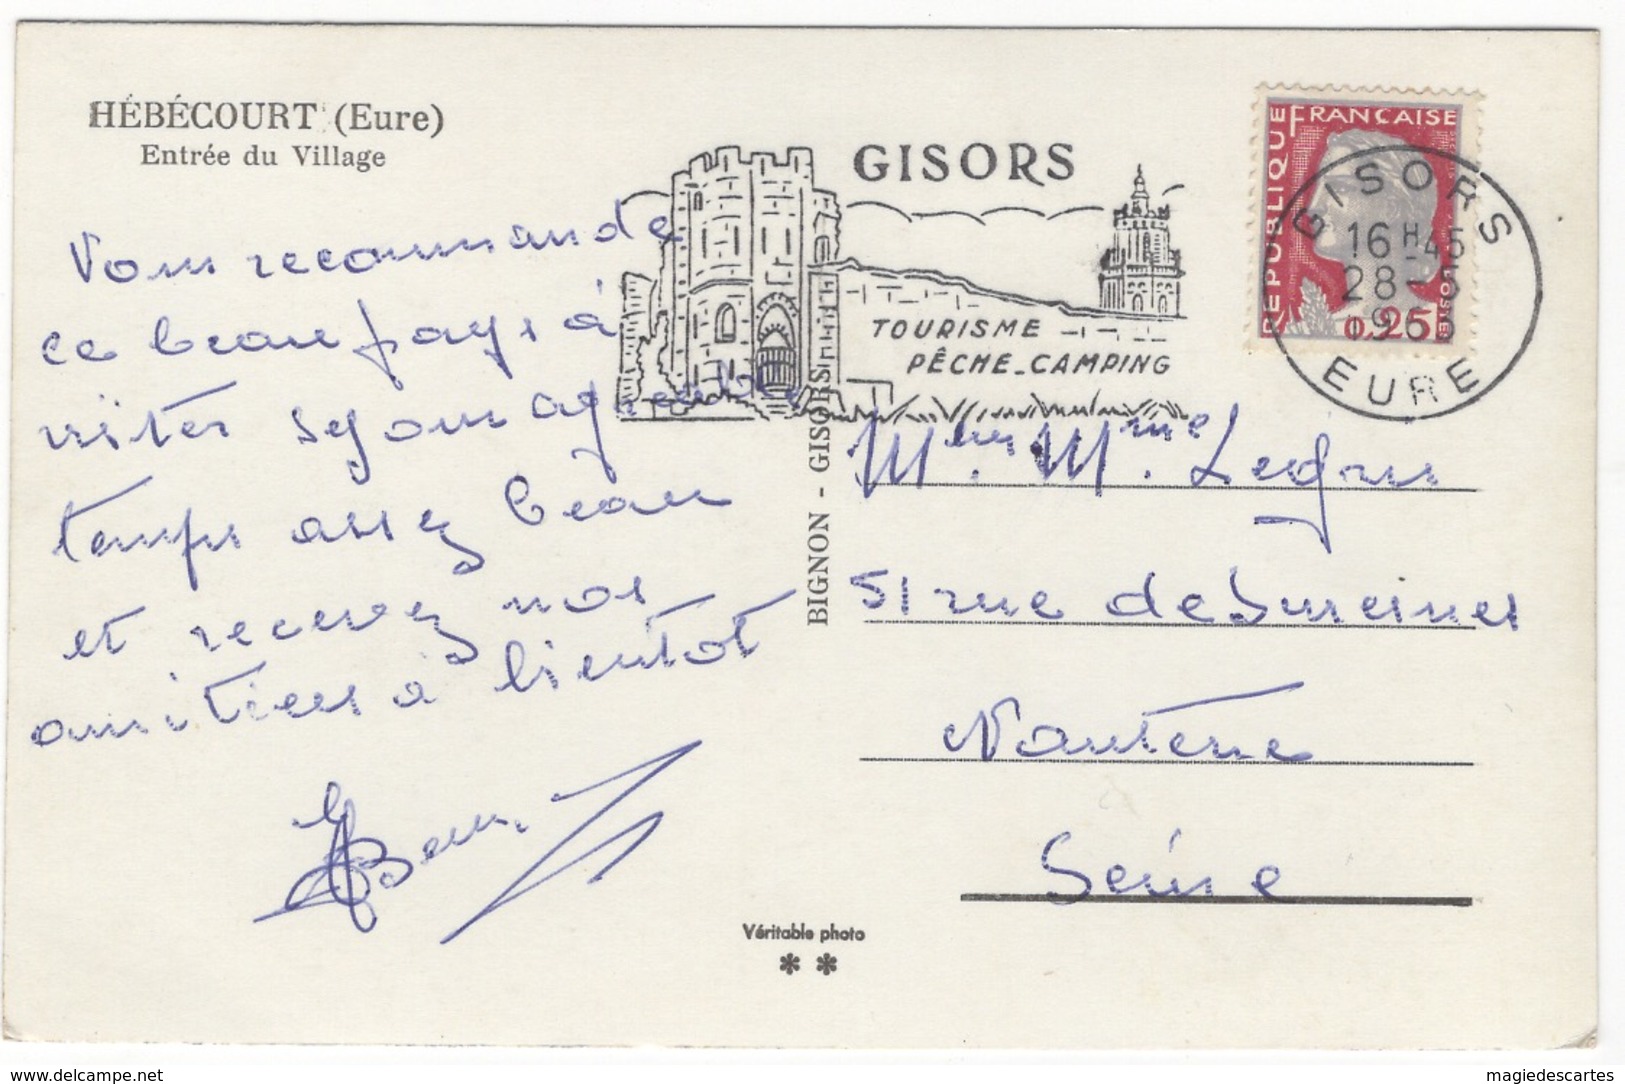 HÉBÉCOURT (Eure)
Entrée du Village
GISORS
TOURISME
PÊCHE_CAMPING
RÉPUBLIQUE
FRANÇAISE
0,25
GISORS
16H45
28-5
EURE
Vous recommande
ce beau pays à
visiter séjour agréable
temps assez beau
et recevez nos
amitiées à bientot
BIGNON - GISORS
Mme Legru
51 rue de Suresnes
Nanterre
Seine
Véritable photo
* *
delcampe.net
magiedescartes